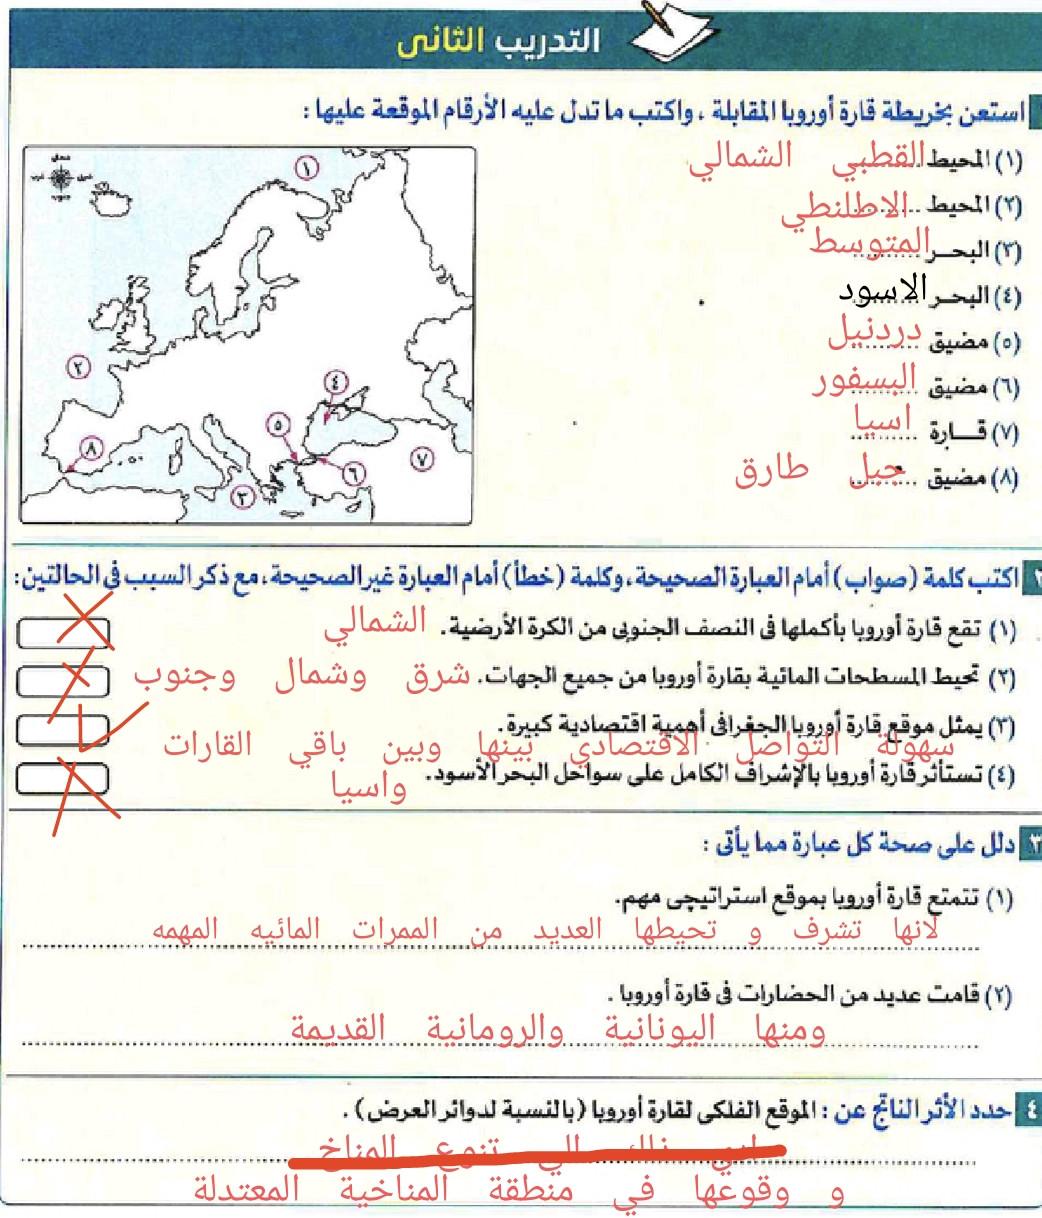 التدريب الثانى
استعن بخريطة قارة أوروبا المقابلة ، واكتب ما تدل عليه الأرقام الموقعة عليها :
(١) المحيط القطبي الشمالي
(٢) المحيط الاطلنطي
(٣) البحر المتوسط
(٤) البحر الاسود
(٥) مضيق دردنيل
(٦) مضيق البسفور
(٧) قارة اسيا
(٨) مضيق جبل طارق
١
٢
٣
٤
٥
٦
٧
٨
٢ اكتب كلمة (صواب) أمام العبارة الصحيحة، وكلمة (خطأ) أمام العبارة غير الصحيحة، مع ذكر السبب فى الحالتين:
(١) تقع قارة أوروبا بأكملها فى النصف الجنوبى من الكرة الأرضية. الشمالي
(٢) تحيط المسطحات المائية بقارة أوروبا من جميع الجهات. شرق وشمال وجنوب
(٣) يمثل موقع قارة أوروبا الجغرافى أهمية اقتصادية كبيرة.
سهولة التواصل الاقتصادي بينها وبين باقي القارات
(٤) تستأثر قارة أوروبا بالإشراف الكامل على سواحل البحر الأسود. واسيا
٣ دلل على صحة كل عبارة مما يأتى :
(١) تتمتع قارة أوروبا بموقع استراتيجى مهم.
لانها تشرف و تحيطها العديد من الممرات المائيه المهمه
(٢) قامت عديد من الحضارات فى قارة أوروبا .
ومنها اليونانية والرومانية القديمة
٤ حدد الأثر الناتج عن : الموقع الفلكى لقارة أوروبا (بالنسبة لدوائر العرض) .
الي تنوع المناخ
و وقوعها في منطقة المناخية المعتدلة